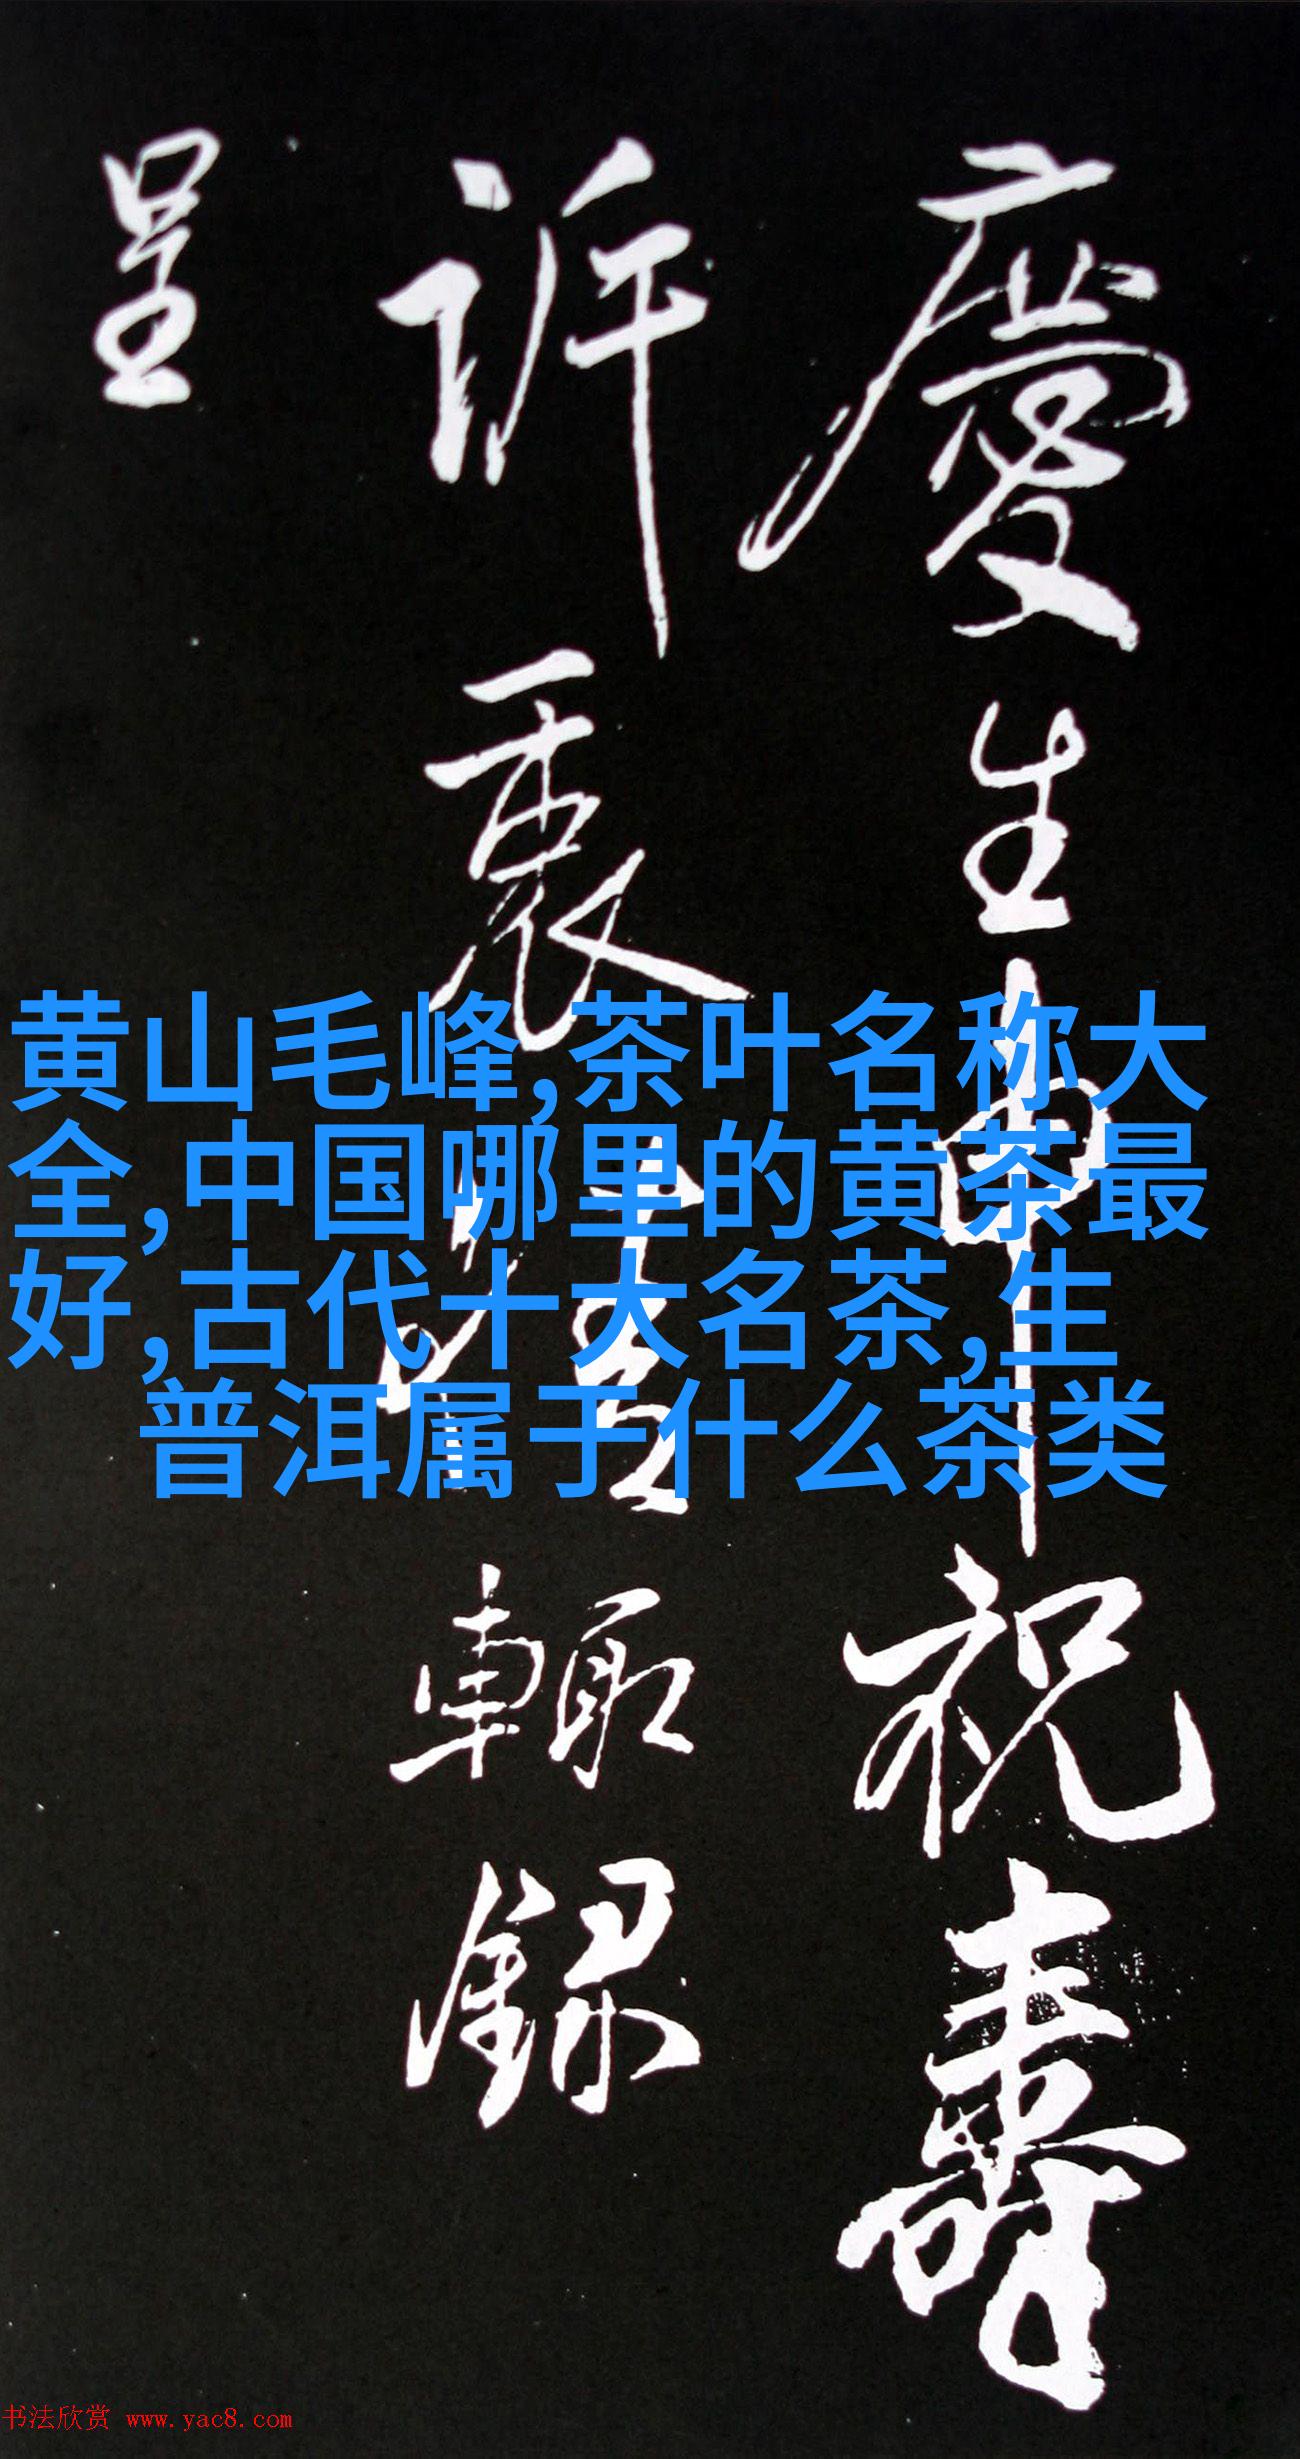 慶生申祝壽
訢衷
輙録
呈
黄山毛峰,茶叶名称大
全,中国哪里的黄茶最
好,古代十大名茶,生
普洱属于什么茶类
书法欣赏 www.yac8.com